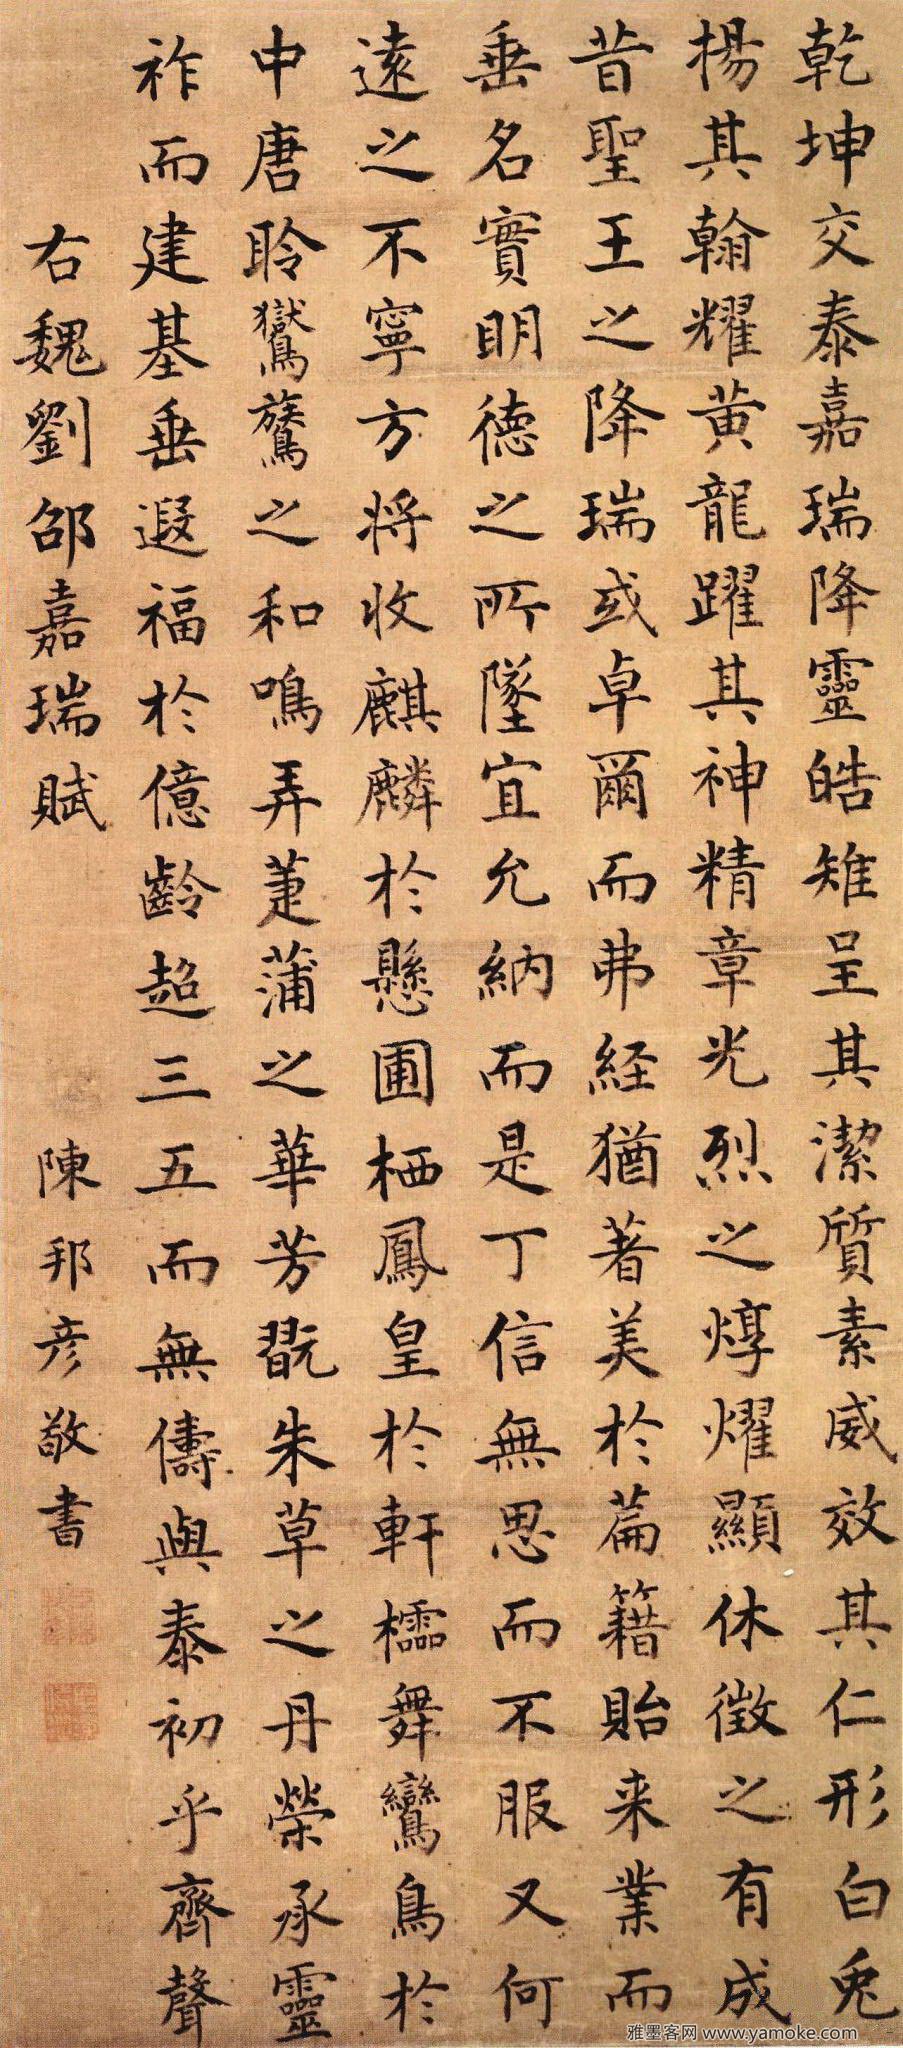 乾坤交泰嘉瑞降靈皓雉呈其潔質素威效其仁形白兎
揚其翰耀黃龍躍其神精章光烈之焞燿顯休徵之有成
昔聖王之降瑞或卓爾而弗経猶著美於篇籍貽来業而
垂名實明德之所墜宜允納而是丁信無思而不服又何
遠之不寧方将收麒麟於懸圃栖鳳皇於軒櫺舞鸞鳥於
中唐聆鸑鷟之和鳴弄萐蒲之華芳翫朱草之丹榮承靈
祚而建基垂遐福於億齡超三五而無儔與泰初乎齊聲
右魏劉邵嘉瑞賦
陳邦彦敬書
雅墨客网 www.yamoke.com